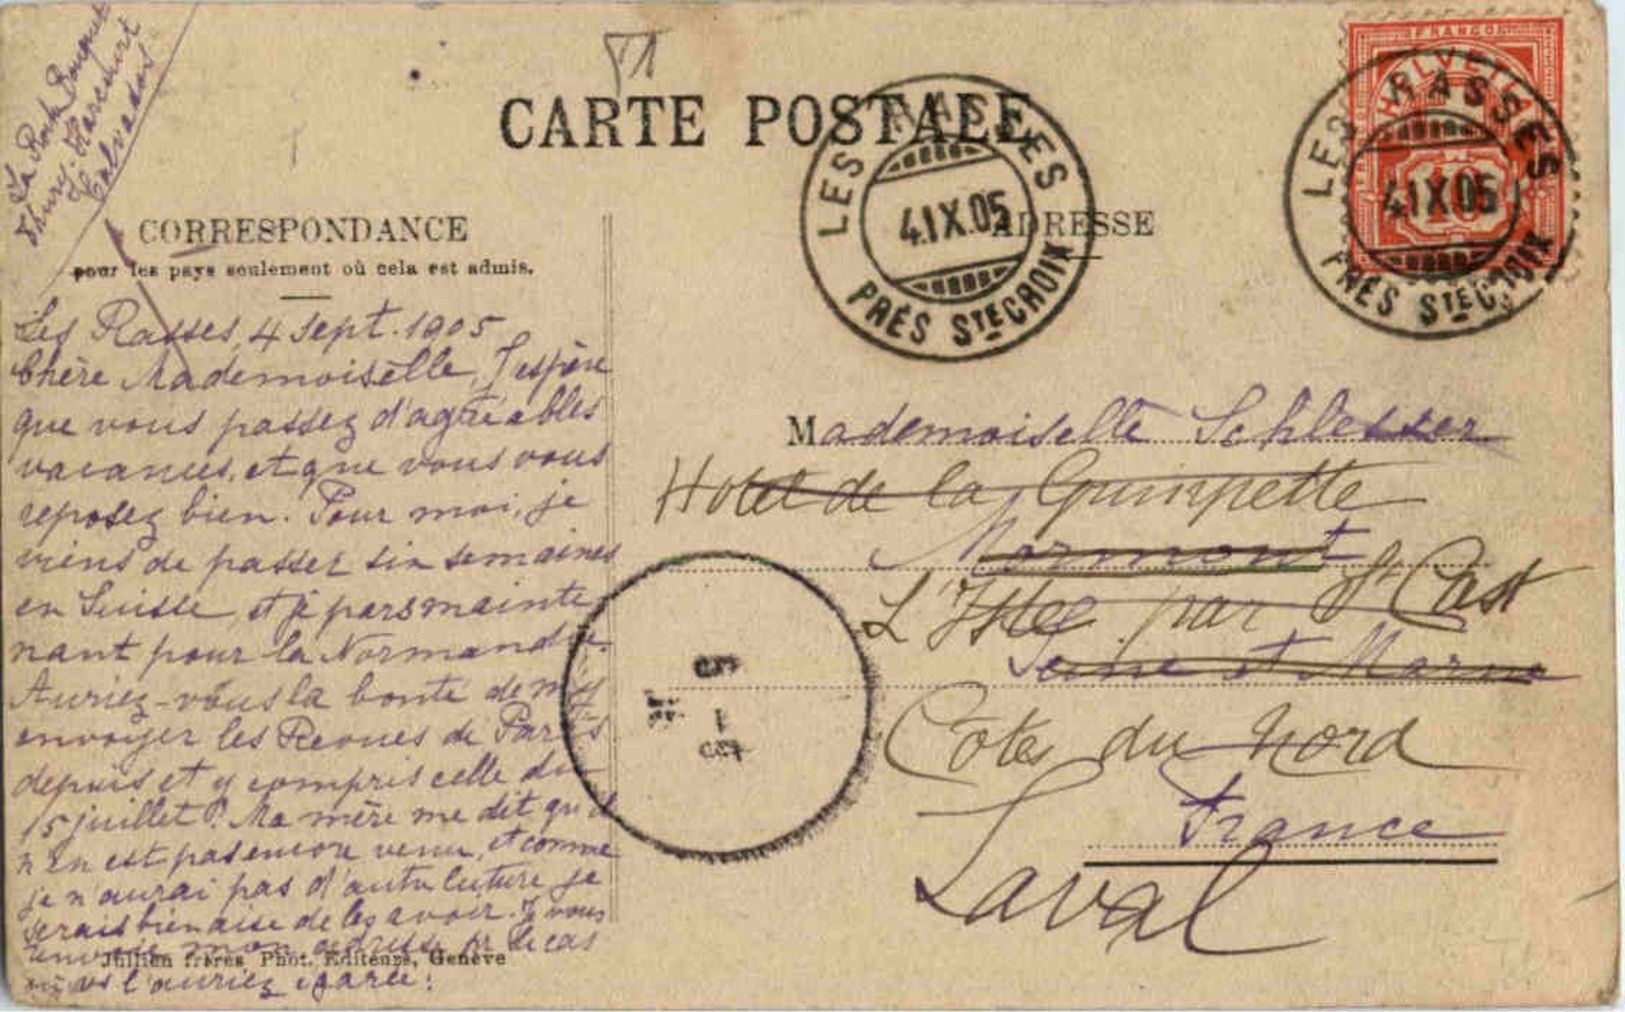 La Roch Bouquet
Thury-Harcourt
Calvados
CARTE POSTALE
CORRESPONDANCE
pour les pays seulement où cela est admis.
ADRESSE
Les Rasses, 4 Sept. 1905
Chère Mademoiselle, J'espère
que vous passez d'agréables
vacances, et que vous vous
reposez bien. Pour moi, je
viens de passer six semaines
en Suisse, et je pars mainte
nant pour la Normandie.
Auriez-vous la bonté de m'y
envoyer les Revues de Paris
depuis et y compris celle du
15 juillet? Ma mère me dit qu'il
n'en est pas encore venu, et comme
je n'aurai pas d'autre lecture je
serais bien aise de les avoir. Je vous
envoie mon adresse pr le cas
où vs l'auriez égarée:
Jullien frères Phot. Editeurs, Genève
LES RASSES
4.IX.05
PRÈS STE CROIX
FRANCO
HELVETIA
10
LES RASSES
4.IX.05
PRÈS STE CROIX
Mademoiselle Schlesser
Hotel de la Guimpette
Mormont
L'Isle par St Cast
Seine et Marne
Côtes du Nord
France
Laval